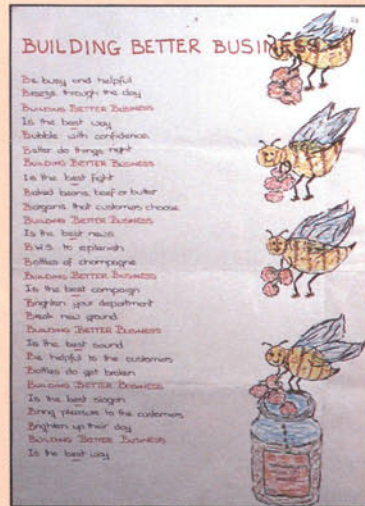 BUILDING BETTER BUSINESS
Be busy and helpful
Breeze through the day
BUILDING BETTER BUSINESS
Is the best way
Bubble with confidence
Better do things right
BUILDING BETTER BUSINESS
Is the best fight
Baked beans, beef or butter
Bargains that customers choose
BUILDING BETTER BUSINESS
Is the best news
B.W.S. to replenish
Bottles of champagne
BUILDING BETTER BUSINESS
Is the best campaign
Brighten your department
Break new ground
BUILDING BETTER BUSINESS
Is the best sound
Be helpful to the customers
Bottles do get broken
BUILDING BETTER BUSINESS
Is the best slogan
Bring pleasure to the customers
Brighten up their day
BUILDING BETTER BUSINESS
Is the best way